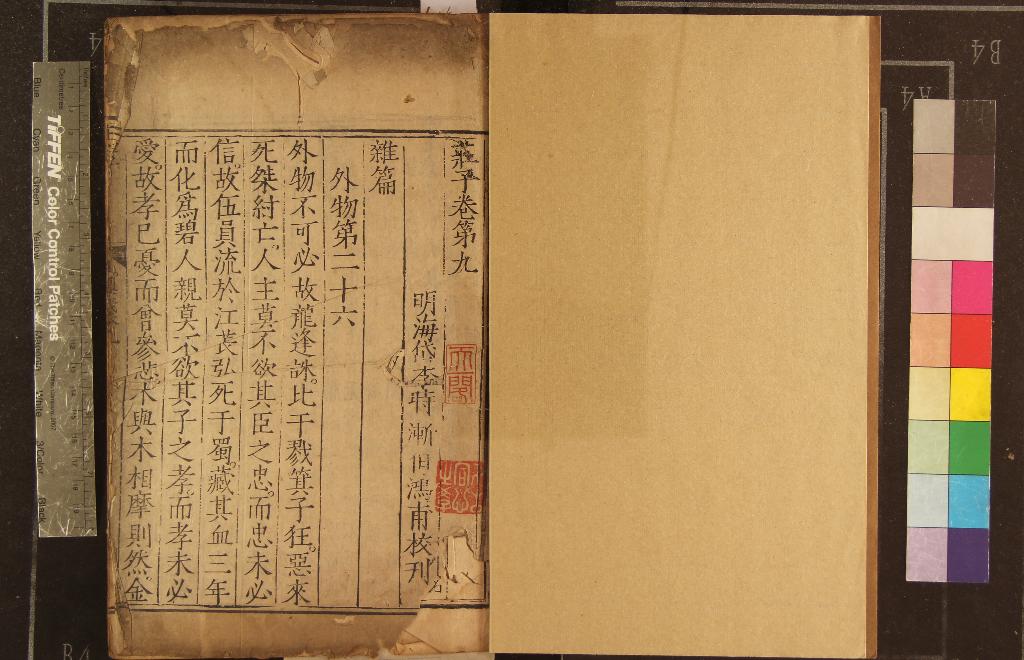 莊子卷第九
明海岱李時漸伯鴻甫校刊
雜篇
外物第二十六
外物不可必故龍逢誅比干戮箕子狂惡來
死桀紂亡人主莫不欲其臣之忠而忠未必
信故伍員流於江萇弘死于蜀藏其血三年
而化爲碧人親莫不欲其子之孝而孝未必
愛故孝已憂而曾參悲木與木相摩則然金
TIFFEN Color Control Patches
Blue
Cyan
Green
Yellow
Red
Magenta
White
3/Color
Black
A4
B4
B4